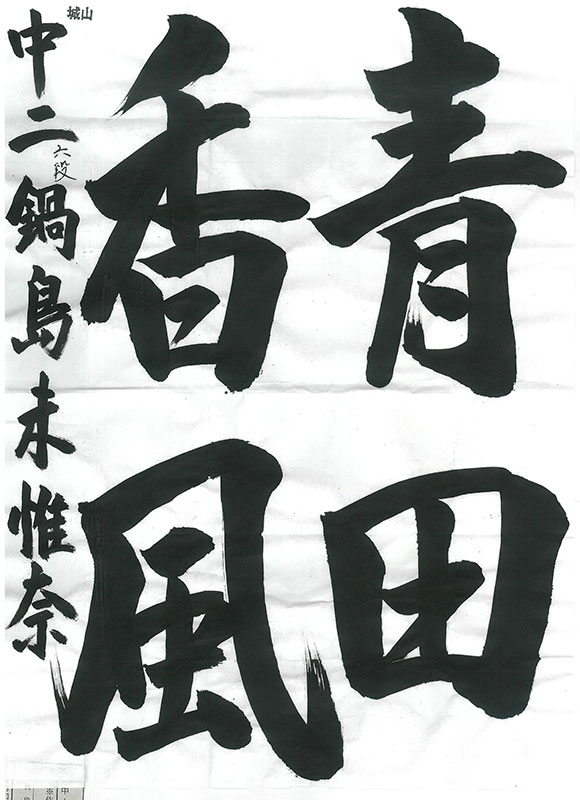 青田
香風
城山
中二 六段 鍋島未惟奈